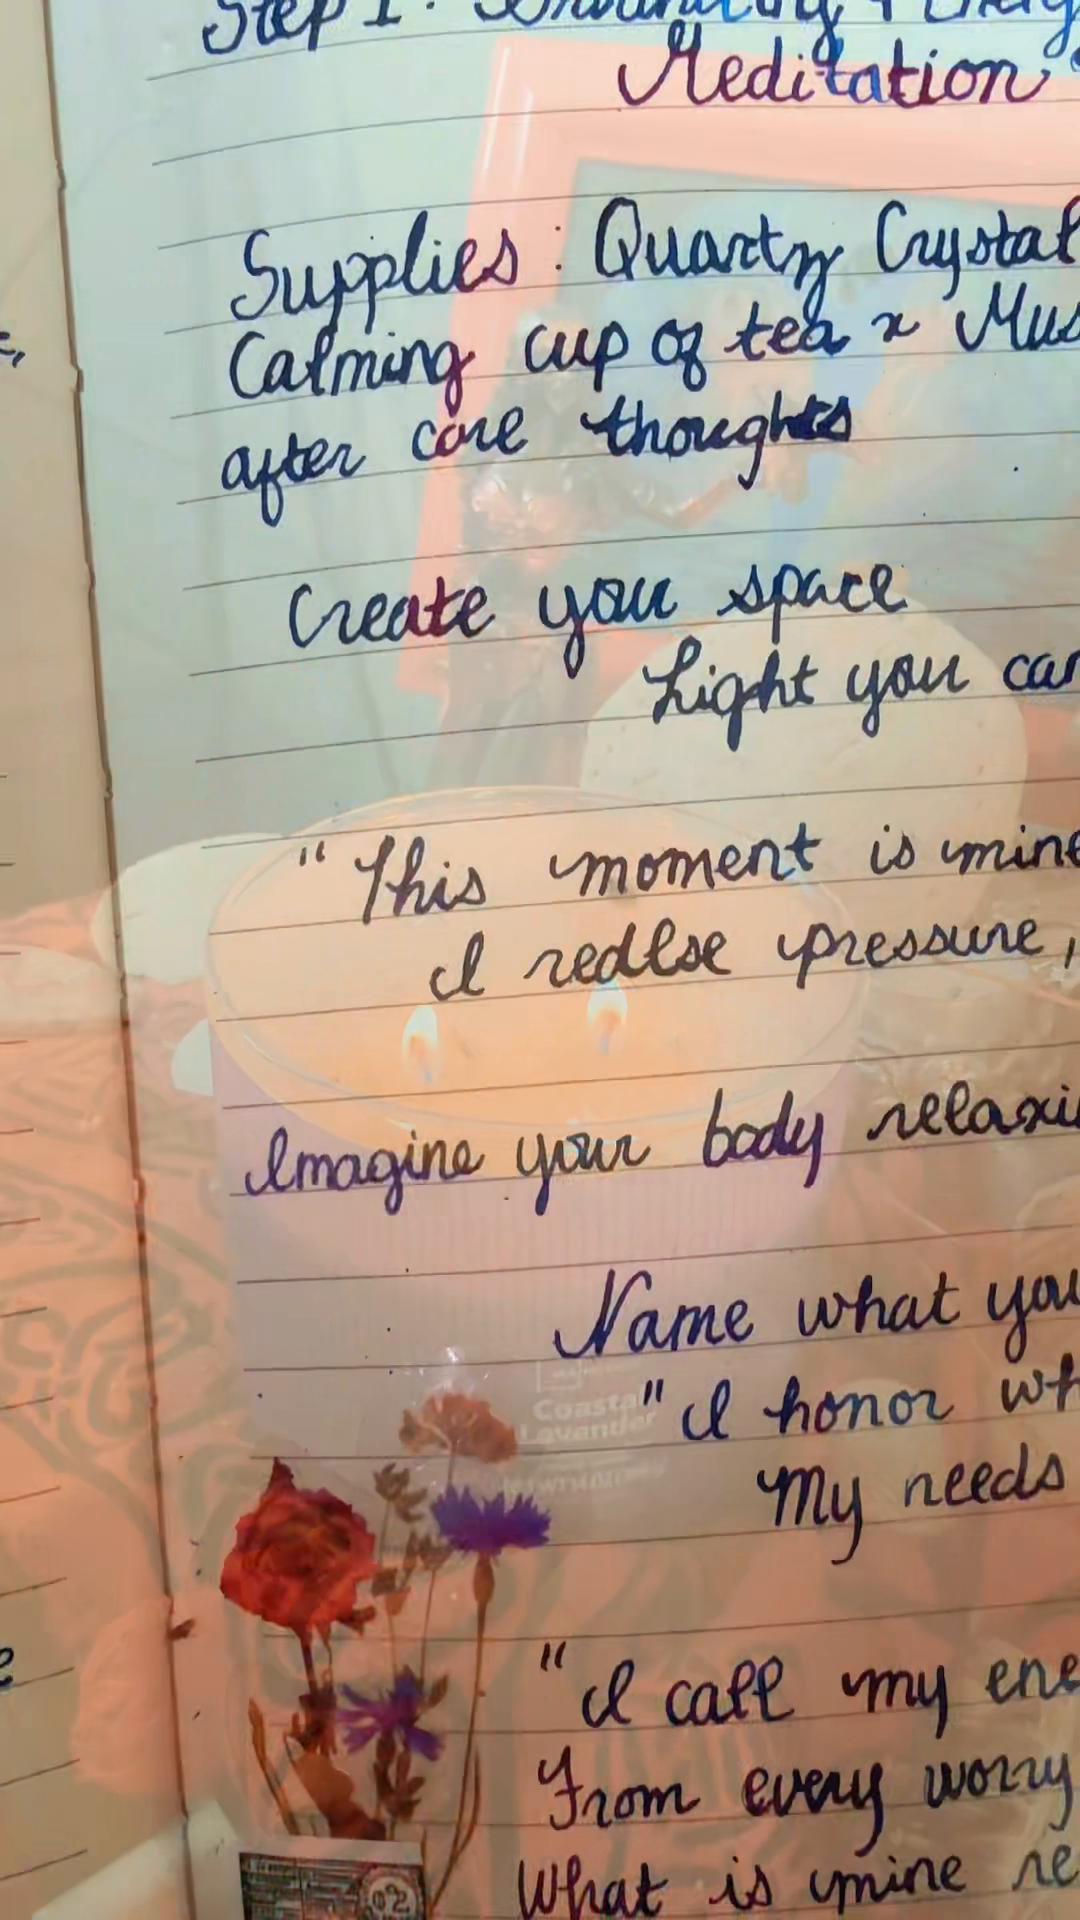 Step 1: Grounding +
Meditation
Supplies: Quartz Crystal
Calming cup of tea x Mus
after care thoughts
Create you space
Light you can
"This moment is mine
I redlse pressure,
Imagine your body relaxi
Name what you
"I honor wh
My needs
"I call my ene
From every worry
What is mine re
Coastal
Lavender
02